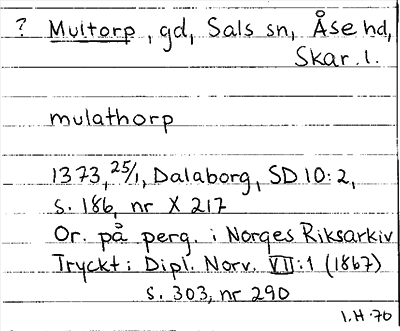 ? Multorp, gd, Sals sn, Åse hd,
Skar. l.
mulathorp
1373, 25/1, Dalaborg, SD 10:2,
s. 186, nr X 217
Or. på perg. i Norges Riksarkiv
Tryckt i Dipl. Norv. VII:1 (1867)
s. 303, nr 290
I.H. 70